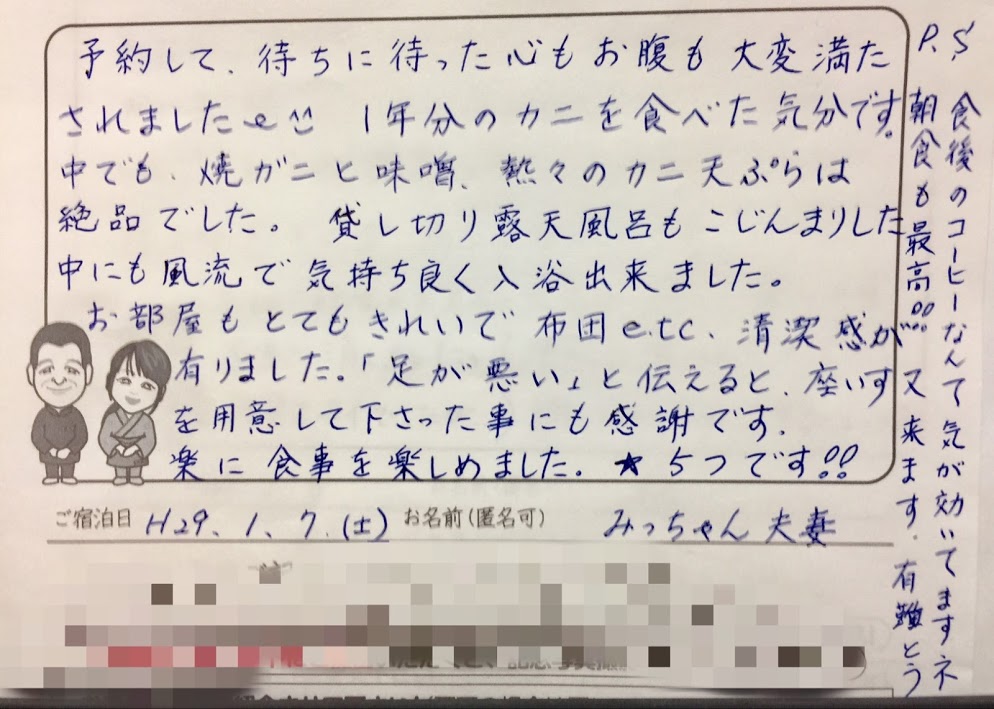 予約して、待ちに待った心もお腹も大変満た
されました 1年分のカニを食べた気分です。
中でも、焼ガニと味噌、熱々のカニ天ぷらは
絶品でした。 貸し切り露天風呂もこじんまりした
中にも風流で気持ち良く入浴出来ました。
お部屋もとてもきれいで布団e.t.c、清潔感が
有りました。「足が悪い」と伝えると、座いす
を用意して下さった事にも感謝です。
楽に食事を楽しめました。★5つです!!
ご宿泊日 H29、1、7.(土) お名前(匿名可) みっちゃん夫妻
P.S
食後のコーヒーなんて気が効いてますネ
朝食も最高!!!又来ます。有難とう